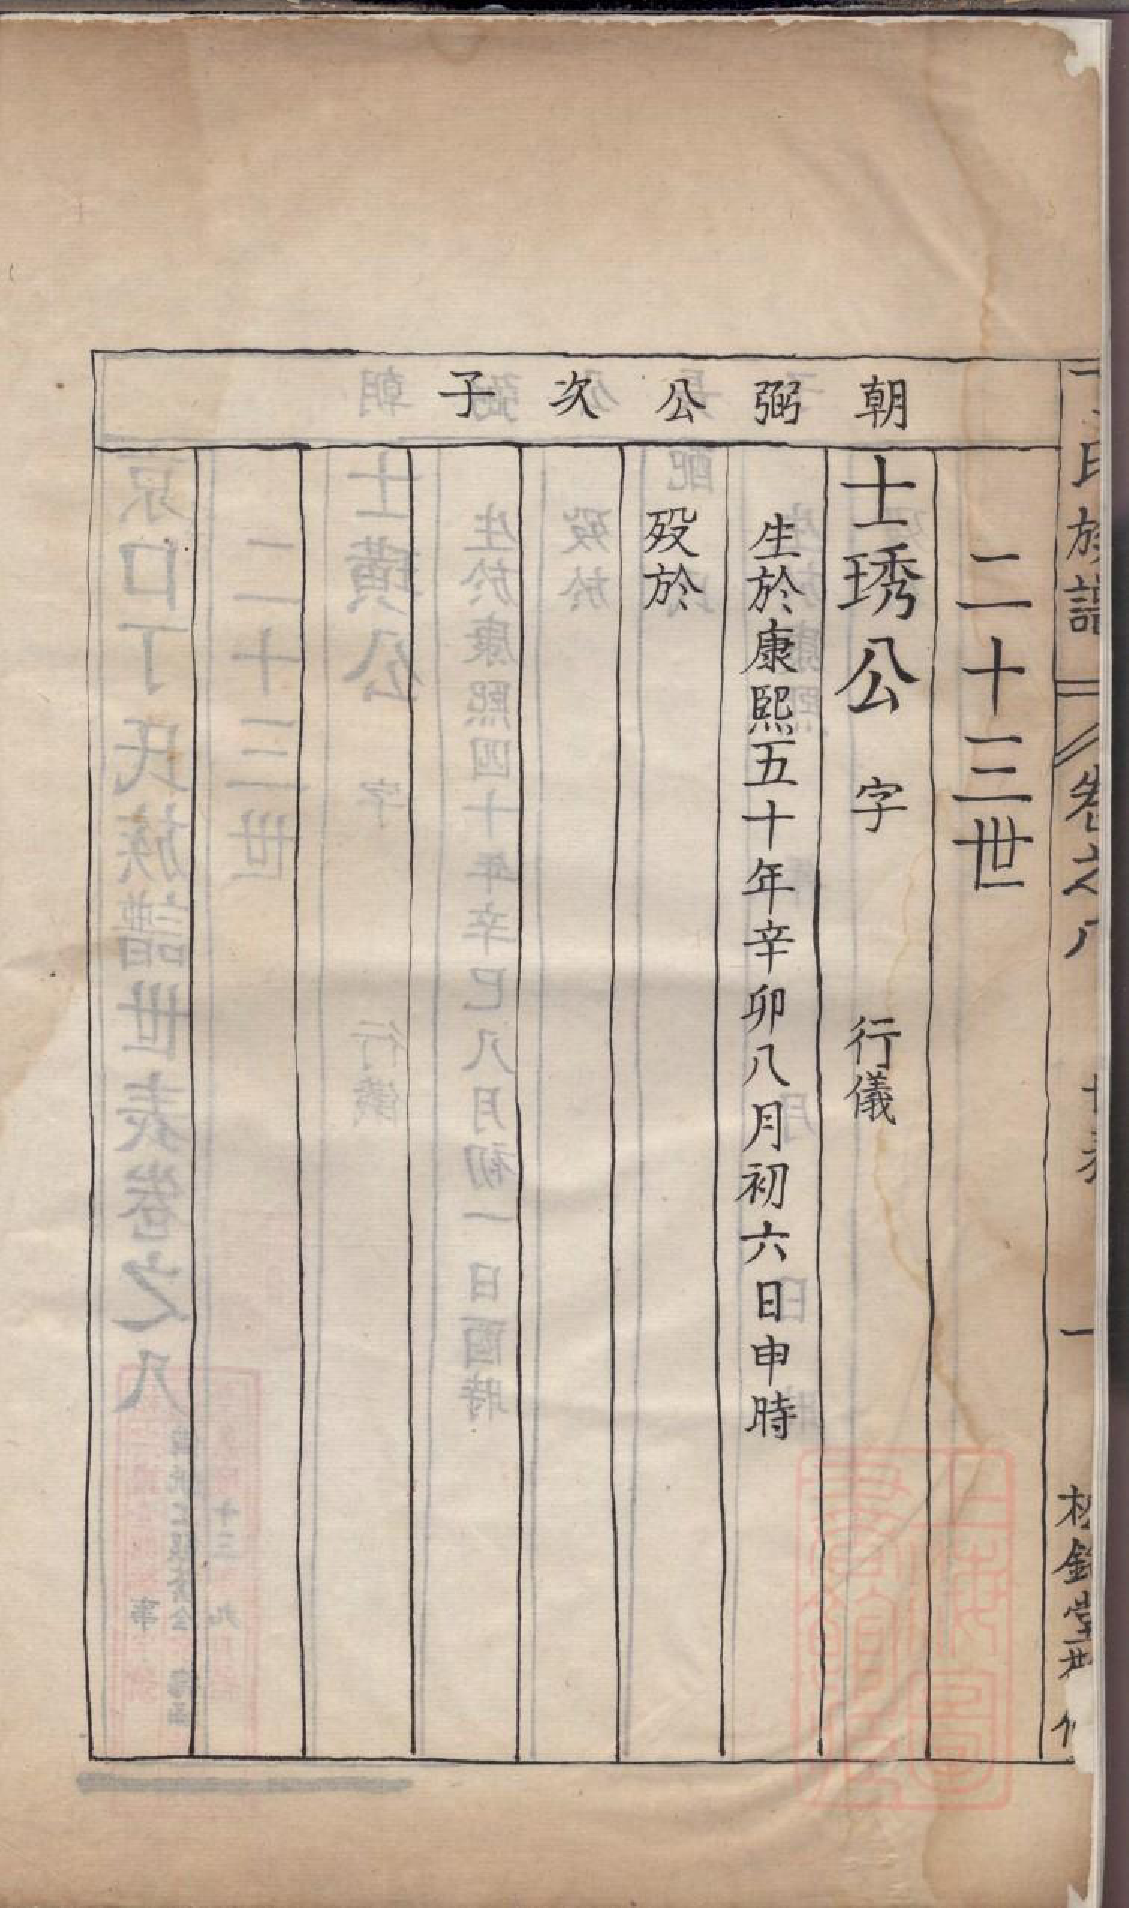 氏族譜 卷之八
一
朝弼公次子
二十三世
士琇公 字 行儀
生於康熙五十年辛卯八月初六日申時
歿於